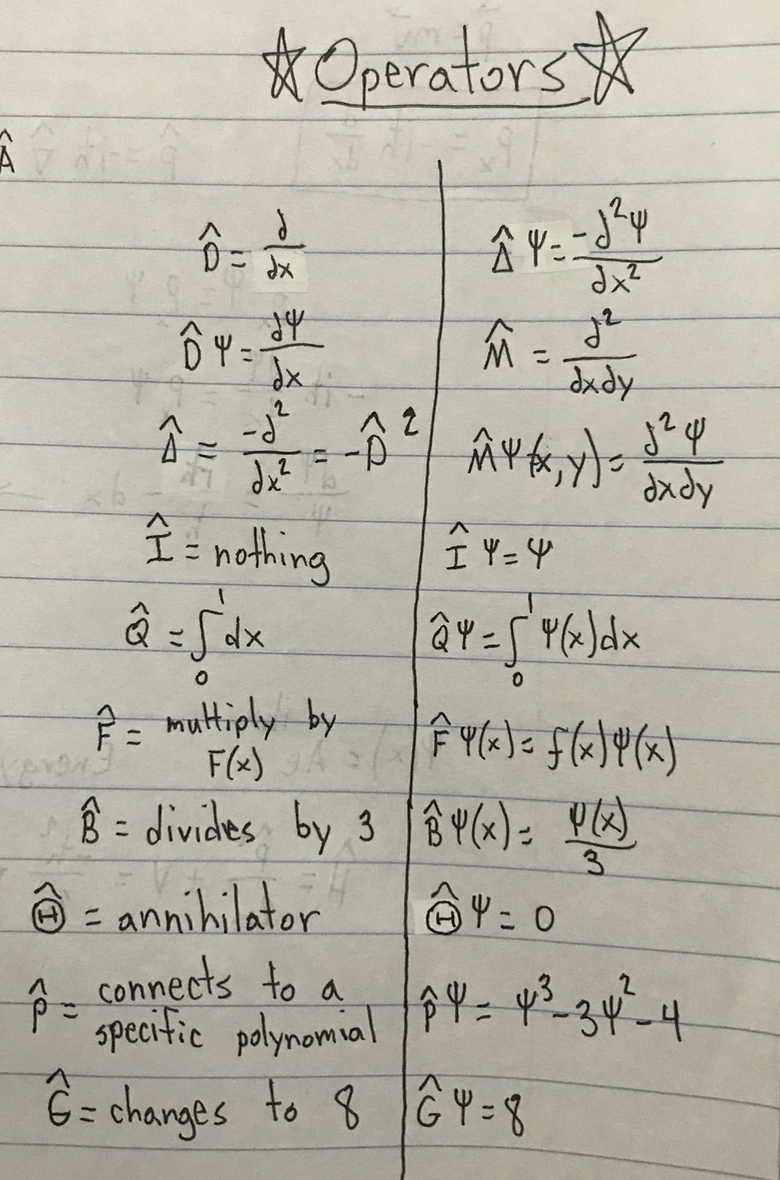 ☆Operators☆
Â
D̂ = d/dx
D̂ Ψ = dΨ/dx
Δ̂ = -d²/dx² = -D̂²
Î = nothing
Q̂ = ∫₀¹ dx
F̂ = multiply by
F(x)
B̂ = divides by 3
Θ̂ = annihilator
p̂ = connects to a
specific polynomial
Ĝ = changes to 8
Δ̂ Ψ = -d²Ψ/dx²
M̂ = d²/dxdy
M̂Ψ(x,y) = d²Ψ/dxdy
Î Ψ = Ψ
Q̂Ψ = ∫₀¹ Ψ(x)dx
F̂ Ψ(x) = f(x)Ψ(x)
B̂ Ψ(x) = Ψ(x)/3
Θ̂ Ψ = 0
p̂Ψ = Ψ³-3Ψ²-4
Ĝ Ψ = 8